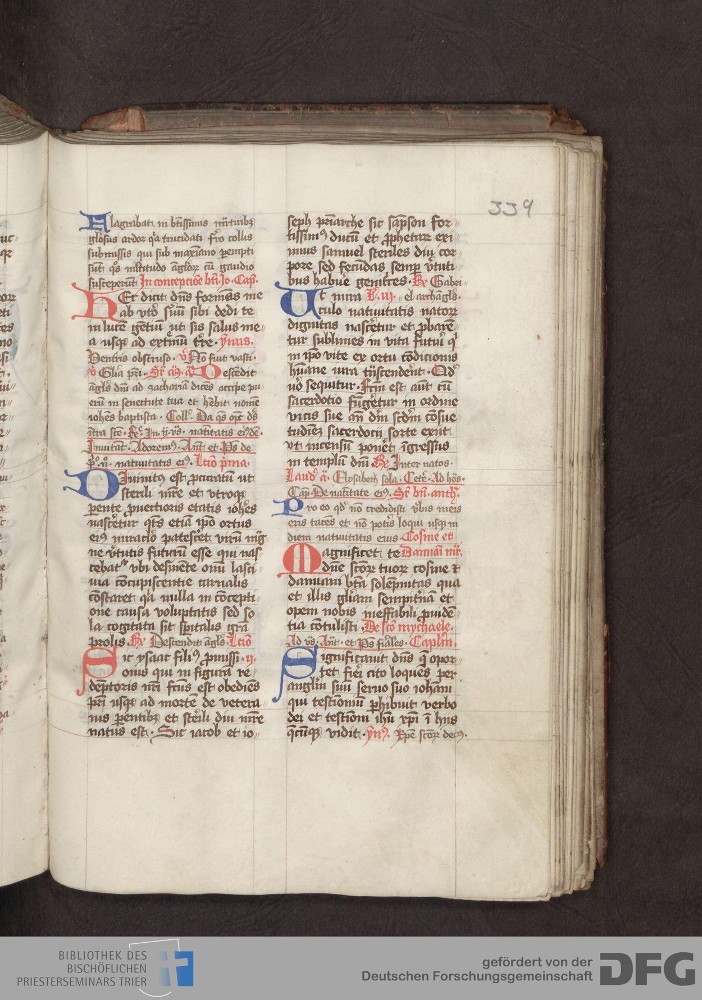 339
Flagrabat in btissimis mrtiribz
glosus ardor
submissis qui sub maxiano pempti
sunt qs multitudo anglor cu gaudio
susceperut In concepcioe bti Jo. Cap.
Hec dicit dns formans me
ab vto suu sibi dedi te
in luce gentiu ut sis salus me
a usqz ad extimu tre. ymus.
Ventris obstruso. No fuit vasti.
Descedit
agls dni ad zacharia dices accipe pu
eru in senectute tua et hebit nome
iohes baptista. Coll. Da qs opt ds
natitatis eiusde.
Invitat. Adorem. Ant et Ps de
natiuitatis ei. Lcio pima.
Diuinitus est pcuratu ut
sterili mre et vtroqz
pente puectioris etatis iohes
nascetur qts etia ipo ortus
ei miraclo patesceret viru mag
ne vtutis futuru esse qui nas
cebat vbi desinete omi lasci
uia cocupiscentie carnalis
costaret qa nulla in cocepti
one causa voluptatis sed so
la cogitata sit spitalis gra
prolis. Descendit agls. Lcio
Sic ysaac fili pmissi. ij.
onis qui in figura re
deptoris nri fcus est obediens
pri usqz ad morte de vetera
nis pentibz et sterili diu mre
natus est. Sic iacob et io
seph priarche sic sapson for
tissim ducu et pphetar exi
mius samuel steriles diu cor
pore sed fecudas semp vtuti
bus habue genitrices. Gabri
Ut mira L. iij. el archagls
culo natiuitatis nator
dignitas nascetur et pbare
tur sublimes in vita futuri q
in ipo vite ex ortu codicionis
huane iura tnscendent. Qd
no sequitur. Fcm est aut cu
sacerdotio fugetur in ordine
vicis sue an dm scdm cosue
tudine sacerdocii sorte exiit
vt incensu ponet igressus
in templu dni Inter natos.
Laud a. Elysabeth sola. Cete. Ad hos.
Cap. De natitate ei. Sr bn. anth.
Pro eo qd no credidisti vbis meis
eris taces et no potis loqui usqz in
diem natiuitatis eius. Cosme et
Magnificet te Damiani mr.
dne scor tuor cosme et
damiani bta solepnitas qua
et illis gliam sempitna et
opem nobis ineffabili puide
tia cotulisti. De sco mychaele.
Ad vs. Ant. et Ps fiales. Caplm.
Significauit dns q opor
tet fieri cito loques per
anglm suu seruo suo iohani
qui testimoniu phibuit verbo
dei et testimoni ihu xpi i hiis
qcuqz vidit. ym. Xpe scor dec.
BIBLIOTHEK DES
BISCHÖFLICHEN
PRIESTERSEMINARS TRIER
gefördert von der
Deutschen Forschungsgemeinschaft
DFG